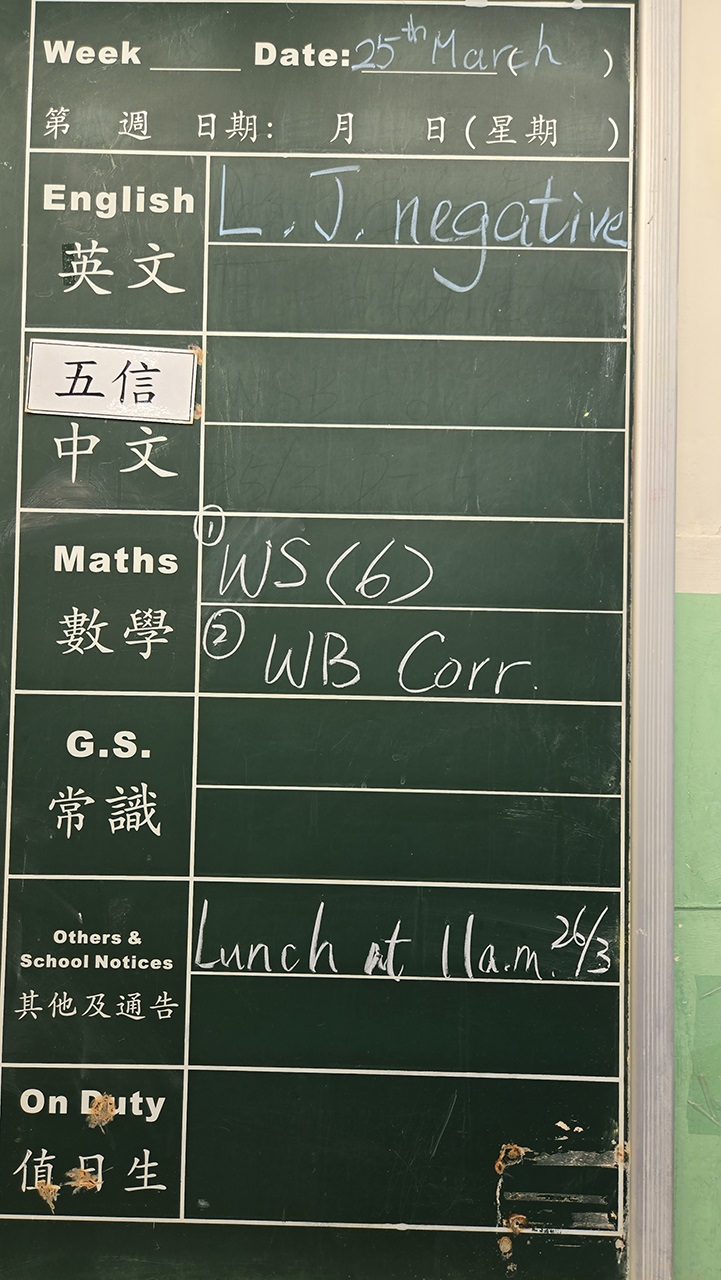 Week ____ Date: 25th March ( )
第 週 日期: 月 日(星期 )
English
L.J. negative
英文
五信
中文
Maths
① WS(6)
數學
② WB Corr.
G.S.
常識
Others &
School Notices
Lunch at 11a.m. 26/3
其他及通告
On Duty
值日生